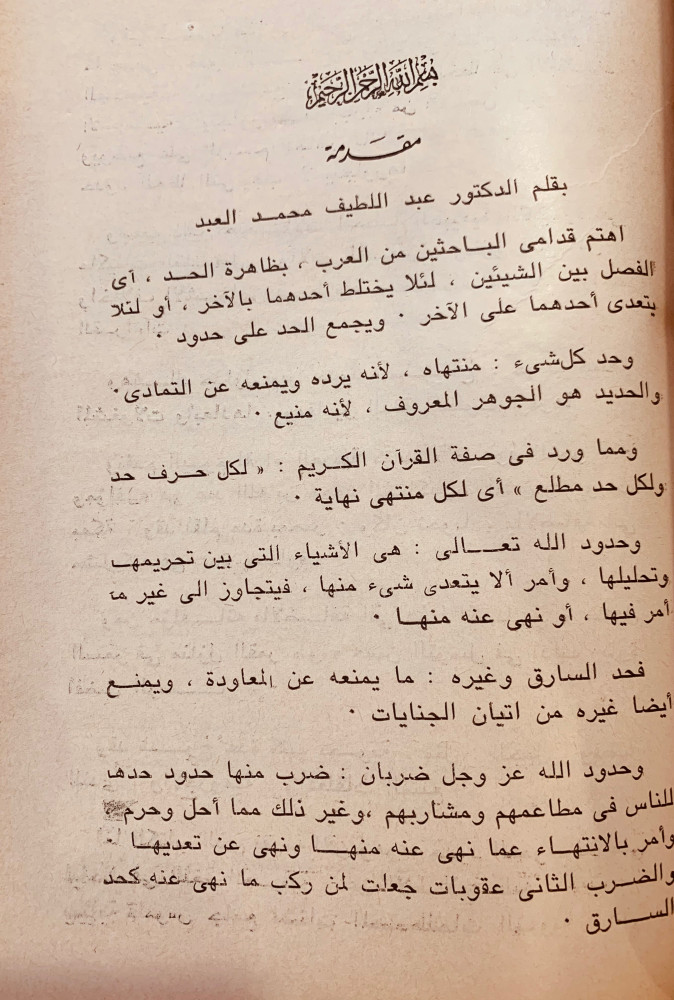 بسم الله الرحمن الرحيم
مقدمة
بقلم الدكتور عبد اللطيف محمد العبد
اهتم قدامى الباحثين من العرب ، بظاهرة الحد ، أى
الفصل بين الشيئين ، لئلا يختلط أحدهما بالآخر ، أو لئلا
يتعدى أحدهما على الآخر ٠ ويجمع الحد على حدود ٠
وحد كل شىء : منتهاه ، لأنه يرده ويمنعه عن التمادى ٠
والحديد هو الجوهر المعروف ، لأنه منيع ٠
ومما ورد فى صفة القرآن الكريم : « لكل حرف حد
ولكل حد مطلع » أى لكل منتهى نهاية ٠
وحدود الله تعالى : هى الأشياء التى بين تحريمها
وتحليلها ، وأمر ألا يتعدى شىء منها ، فيتجاوز الى غير ما
أمر فيها ، أو نهى عنه منها ٠
فحد السارق وغيره : ما يمنعه عن المعاودة ، ويمنع
أيضا غيره من اتيان الجنايات ٠
وحدود الله عز وجل ضربان : ضرب منها حدود حدها
للناس فى مطاعمهم ومشاربهم ،وغير ذلك مما أحل وحرم
وأمر بالانتهاء عما نهى عنه منها ونهى عن تعديها ٠
والضرب الثانى عقوبات جعلت لمن ركب ما نهى عنه كحد
السارق ٠